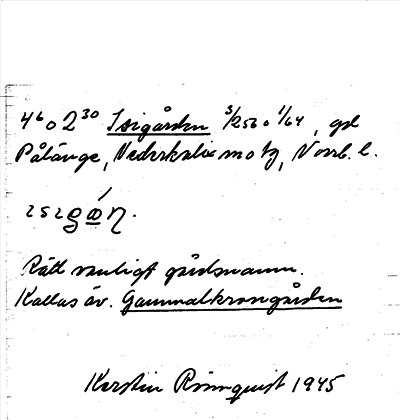 4⁶ o 2³⁰ Isigården 3/256 o 1/64, gd
Pålänge, Nederkalix sn o tg, Norrb. l.
ısıgǻn.
Rätt vanligt gårdsnamn.
Kallas äv. Gammalkrongården
Kerstin Rönnquist 1945